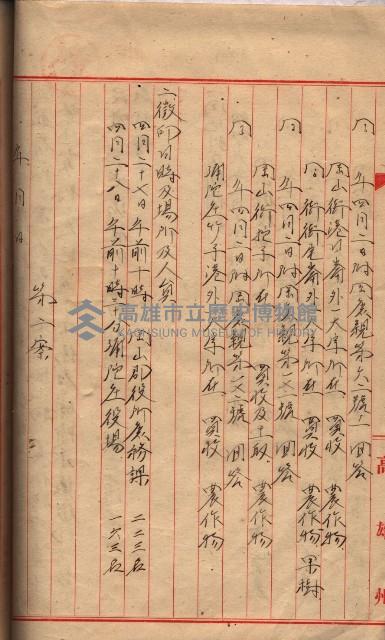 同 年四月二日附岡庶親第六一號ノ一 回答
岡山街後汁[?]外一大字所在 買收 農作物
同 街街尾崙外一字所在 買收 農作物 果樹
同 年四月二日附岡庶親第一六一號 回答
岡山街挖子所在 買收及土取 農作物
同 年四月二日附岡庶親第一六二號 回答
彌陀庄竹子港外一字所在 買收 農作物
二、徵印日時及場所及人員
四月二十七日 午前十時 岡山郡役所庶務課 二二三名
四月二十八日 午前十時 彌陀庄役場 一六三名
第二案
年 月 日
高雄州
高雄市立歷史博物館
KAOHSIUNG MUSEUM OF HISTORY